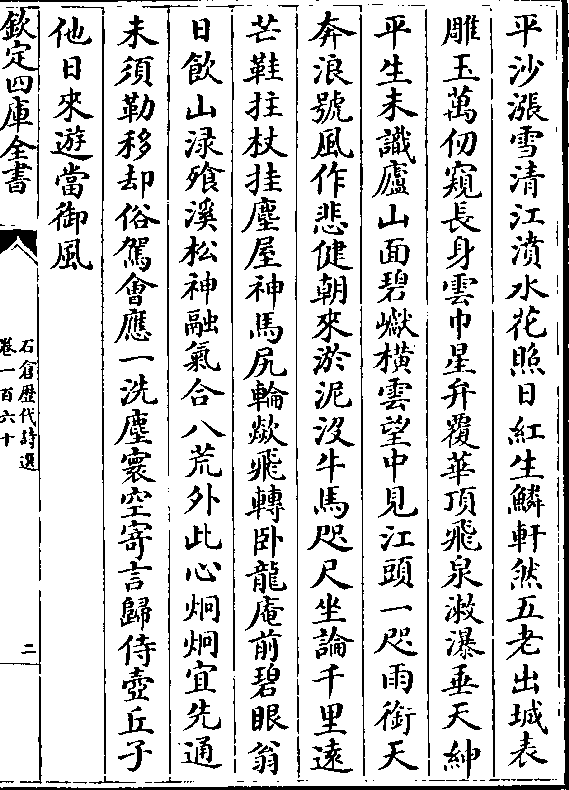 平沙漲雪清江濆水花照日紅生鱗軒然五老出城表
雕玉萬仞窺長身雲巾星弁覆華頂飛泉潄瀑垂天紳
平生未識廬山面碧巘橫雲望中見江頭一咫雨銜天
奔浪號風作悲健朝來淤泥沒牛馬咫尺坐論千里遠
芒鞋拄杖挂塵屋神馬尻輪歘飛轉卧龍庵前碧眼翁
日飲山淥飱溪松神融氣合八荒外此心炯炯宜先通
未須勒移却俗駕會應一洗塵寰空寄言歸侍壺丘子
他日來遊當御風
欽定四庫全書
石倉歷代詩選
卷一百六十
二